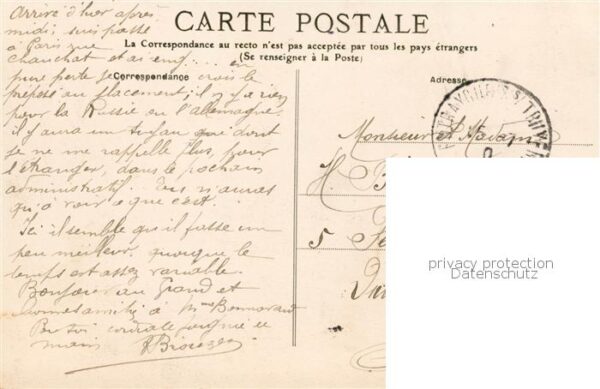 CARTE POSTALE
La Correspondance au recto n'est pas acceptée par tous les pays étrangers
(Se renseigner à la Poste)
Correspondance
Adresse
Arrivé d'hier après
midi, suis passé
à Paris rue
Chauchat et ai en
pure perte je crois le
préposé au placement; il n'y a rien
pour la Russie ou l'allemagne
il y aura un tuyau que dont
je ne me rappelle plus, pour
l'étranger, dans le prochain
administratif. n'aurez
qu'à voir ce que c'est.
Ici il semble qu'il fasse un
peu meilleur, quoique le
temps est assez variable.
Bonjour au Grand et
à Mme Bonnorant
cordiale poignée de
main
Monsieur et Madame
H. B
5
privacy protection
Datenschutz